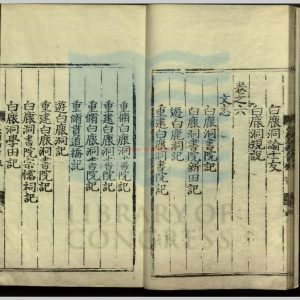 白鹿洞諭士文
白鹿洞規說
卷之六
文志
白鹿洞書院記
白鹿洞書院新田記
遊白鹿洞記
重建白鹿洞書院記
重脩白鹿洞書院記
重建白鹿洞書院記
重脩白鹿洞書院記
重脩貫道橋記
遊白鹿洞記
白鹿洞書院宗儒祠記
白鹿洞學田記
LIBRARY OF
CONGRESS